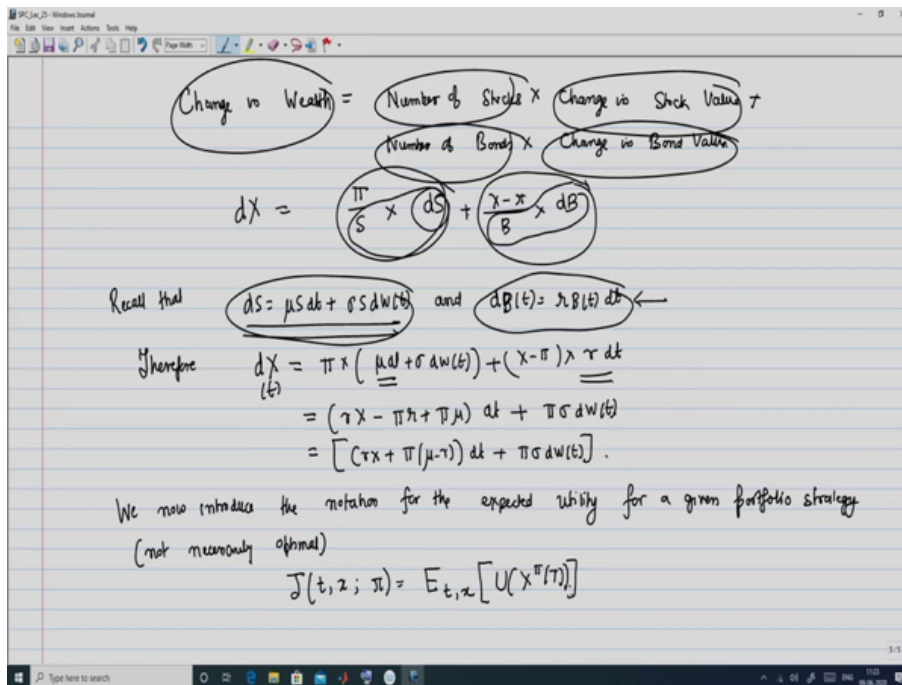 SPC_Lec_25 - Windows Journal
File Edit View Insert Actions Tools Help
Page Width
Change in Wealth = Number of Stocks × Change in Stock Value +
Number of Bonds × Change in Bond Value
dX = π/S × dS + (X-π)/B × dB
Recall that dS = μSdt + σSdW(t) and dB(t) = rB(t) dt ←
Therefore dX(t) = π × (μdt + σ dW(t)) + (X-π) × r dt
= (rX - πr + πμ) dt + πσ dW(t)
= [(rX + π(μ-r)) dt + πσ dW(t)].
We now introduce the notation for the expected utility for a given portfolio strategy
(not necessarily optimal)
J(t, x; π) = E_{t,x} [U(X^π(T))]
5/5
Type here to search
ENG
11:23
09-06-2020